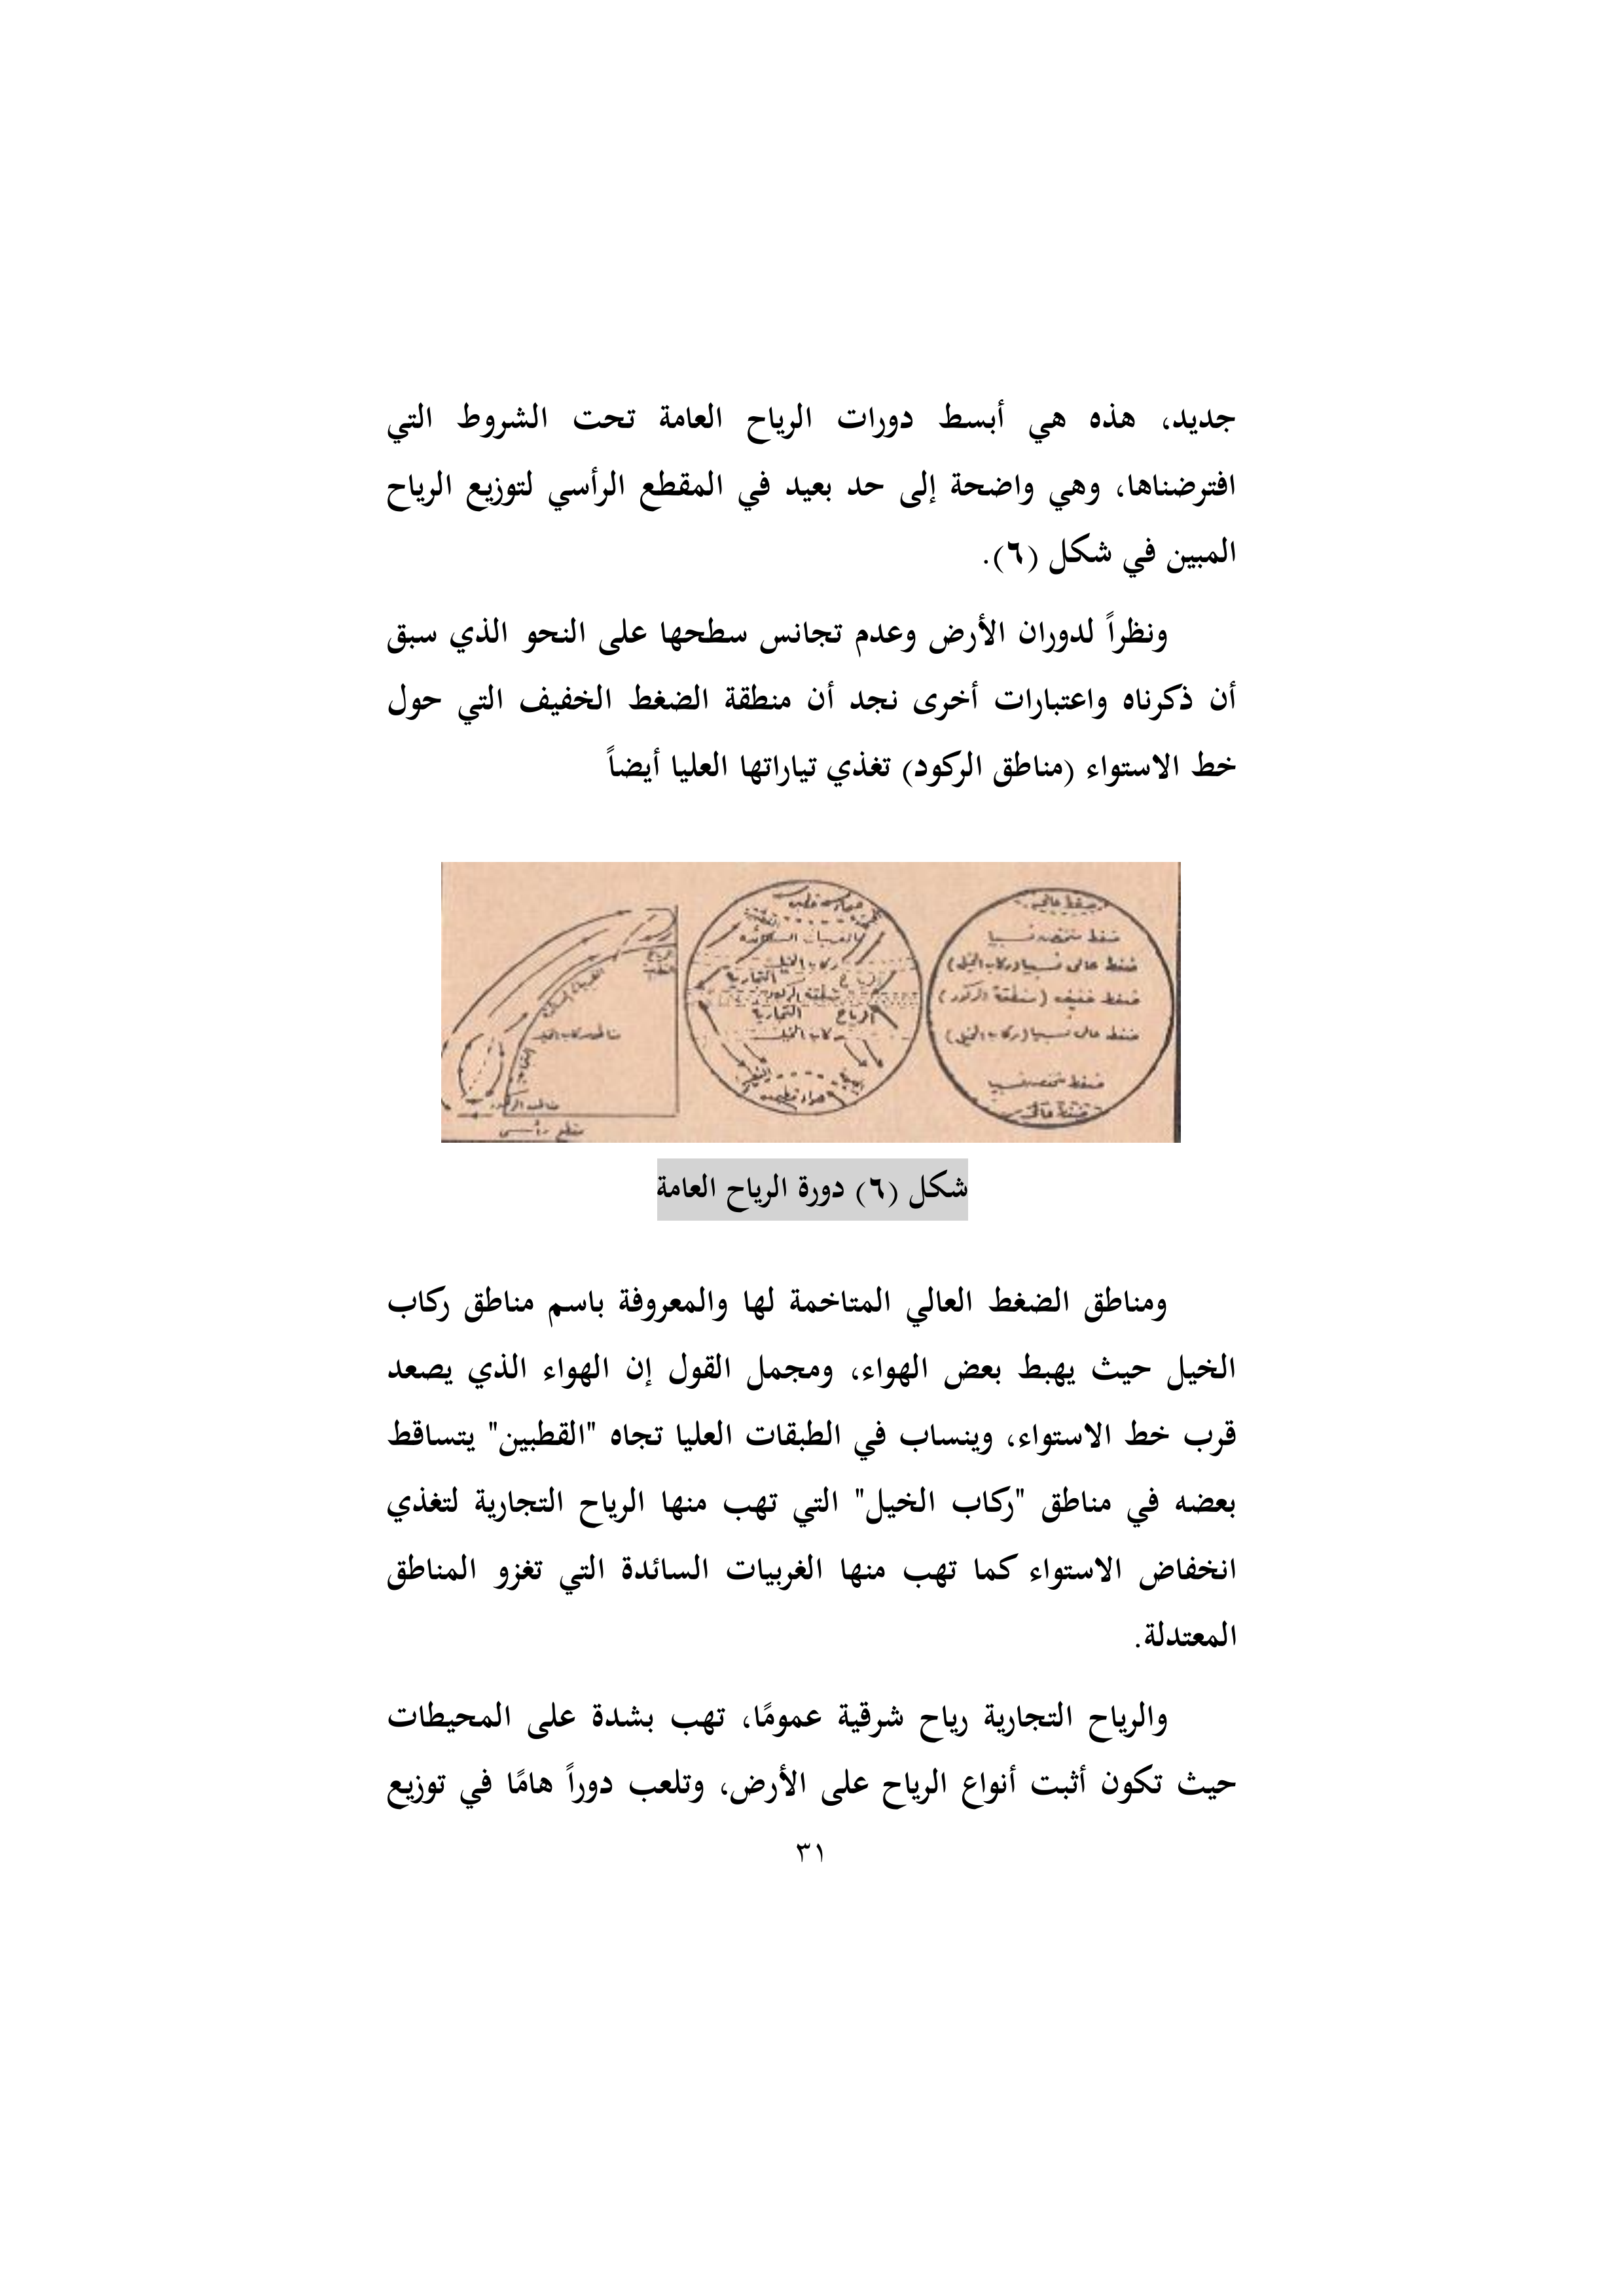 جديد، هذه هي أبسط دورات الرياح العامة تحت الشروط التي
افترضناها، وهي واضحة إلى حد بعيد في المقطع الرأسي لتوزيع الرياح
المبين في شكل (٦).
ونظراً لدوران الأرض وعدم تجانس سطحها على النحو الذي سبق
أن ذكرناه واعتبارات أخرى نجد أن منطقة الضغط الخفيف التي حول
خط الاستواء (مناطق الركود) تغذي تياراتها العليا أيضاً
ضغط عالي
ضغط منخفض نسبيا
ضغط عالى نسبيا (ركاب الخيل)
ضغط خفيف (منطقة الركود)
ضغط عالى نسبيا (ركاب الخيل)
ضغط منخفض نسبيا
ضغط عالي
الغربيات السائدة
ركاب الخيل
الرياح التجارية
منطقة الركود
الرياح التجارية
ركاب الخيل
مناطق ركاب الخيل
مناطق الركود
مقطع رأسى
شكل (٦) دورة الرياح العامة
ومناطق الضغط العالي المتاخمة لها والمعروفة باسم مناطق ركاب
الخيل حيث يهبط بعض الهواء، ومجمل القول إن الهواء الذي يصعد
قرب خط الاستواء، وينساب في الطبقات العليا تجاه "القطبين" يتساقط
بعضه في مناطق "ركاب الخيل" التي تهب منها الرياح التجارية لتغذي
انخفاض الاستواء كما تهب منها الغربيات السائدة التي تغزو المناطق
المعتدلة.
والرياح التجارية رياح شرقية عمومًا، تهب بشدة على المحيطات
حيث تكون أثبت أنواع الرياح على الأرض، وتلعب دوراً هامًا في توزيع
٣١